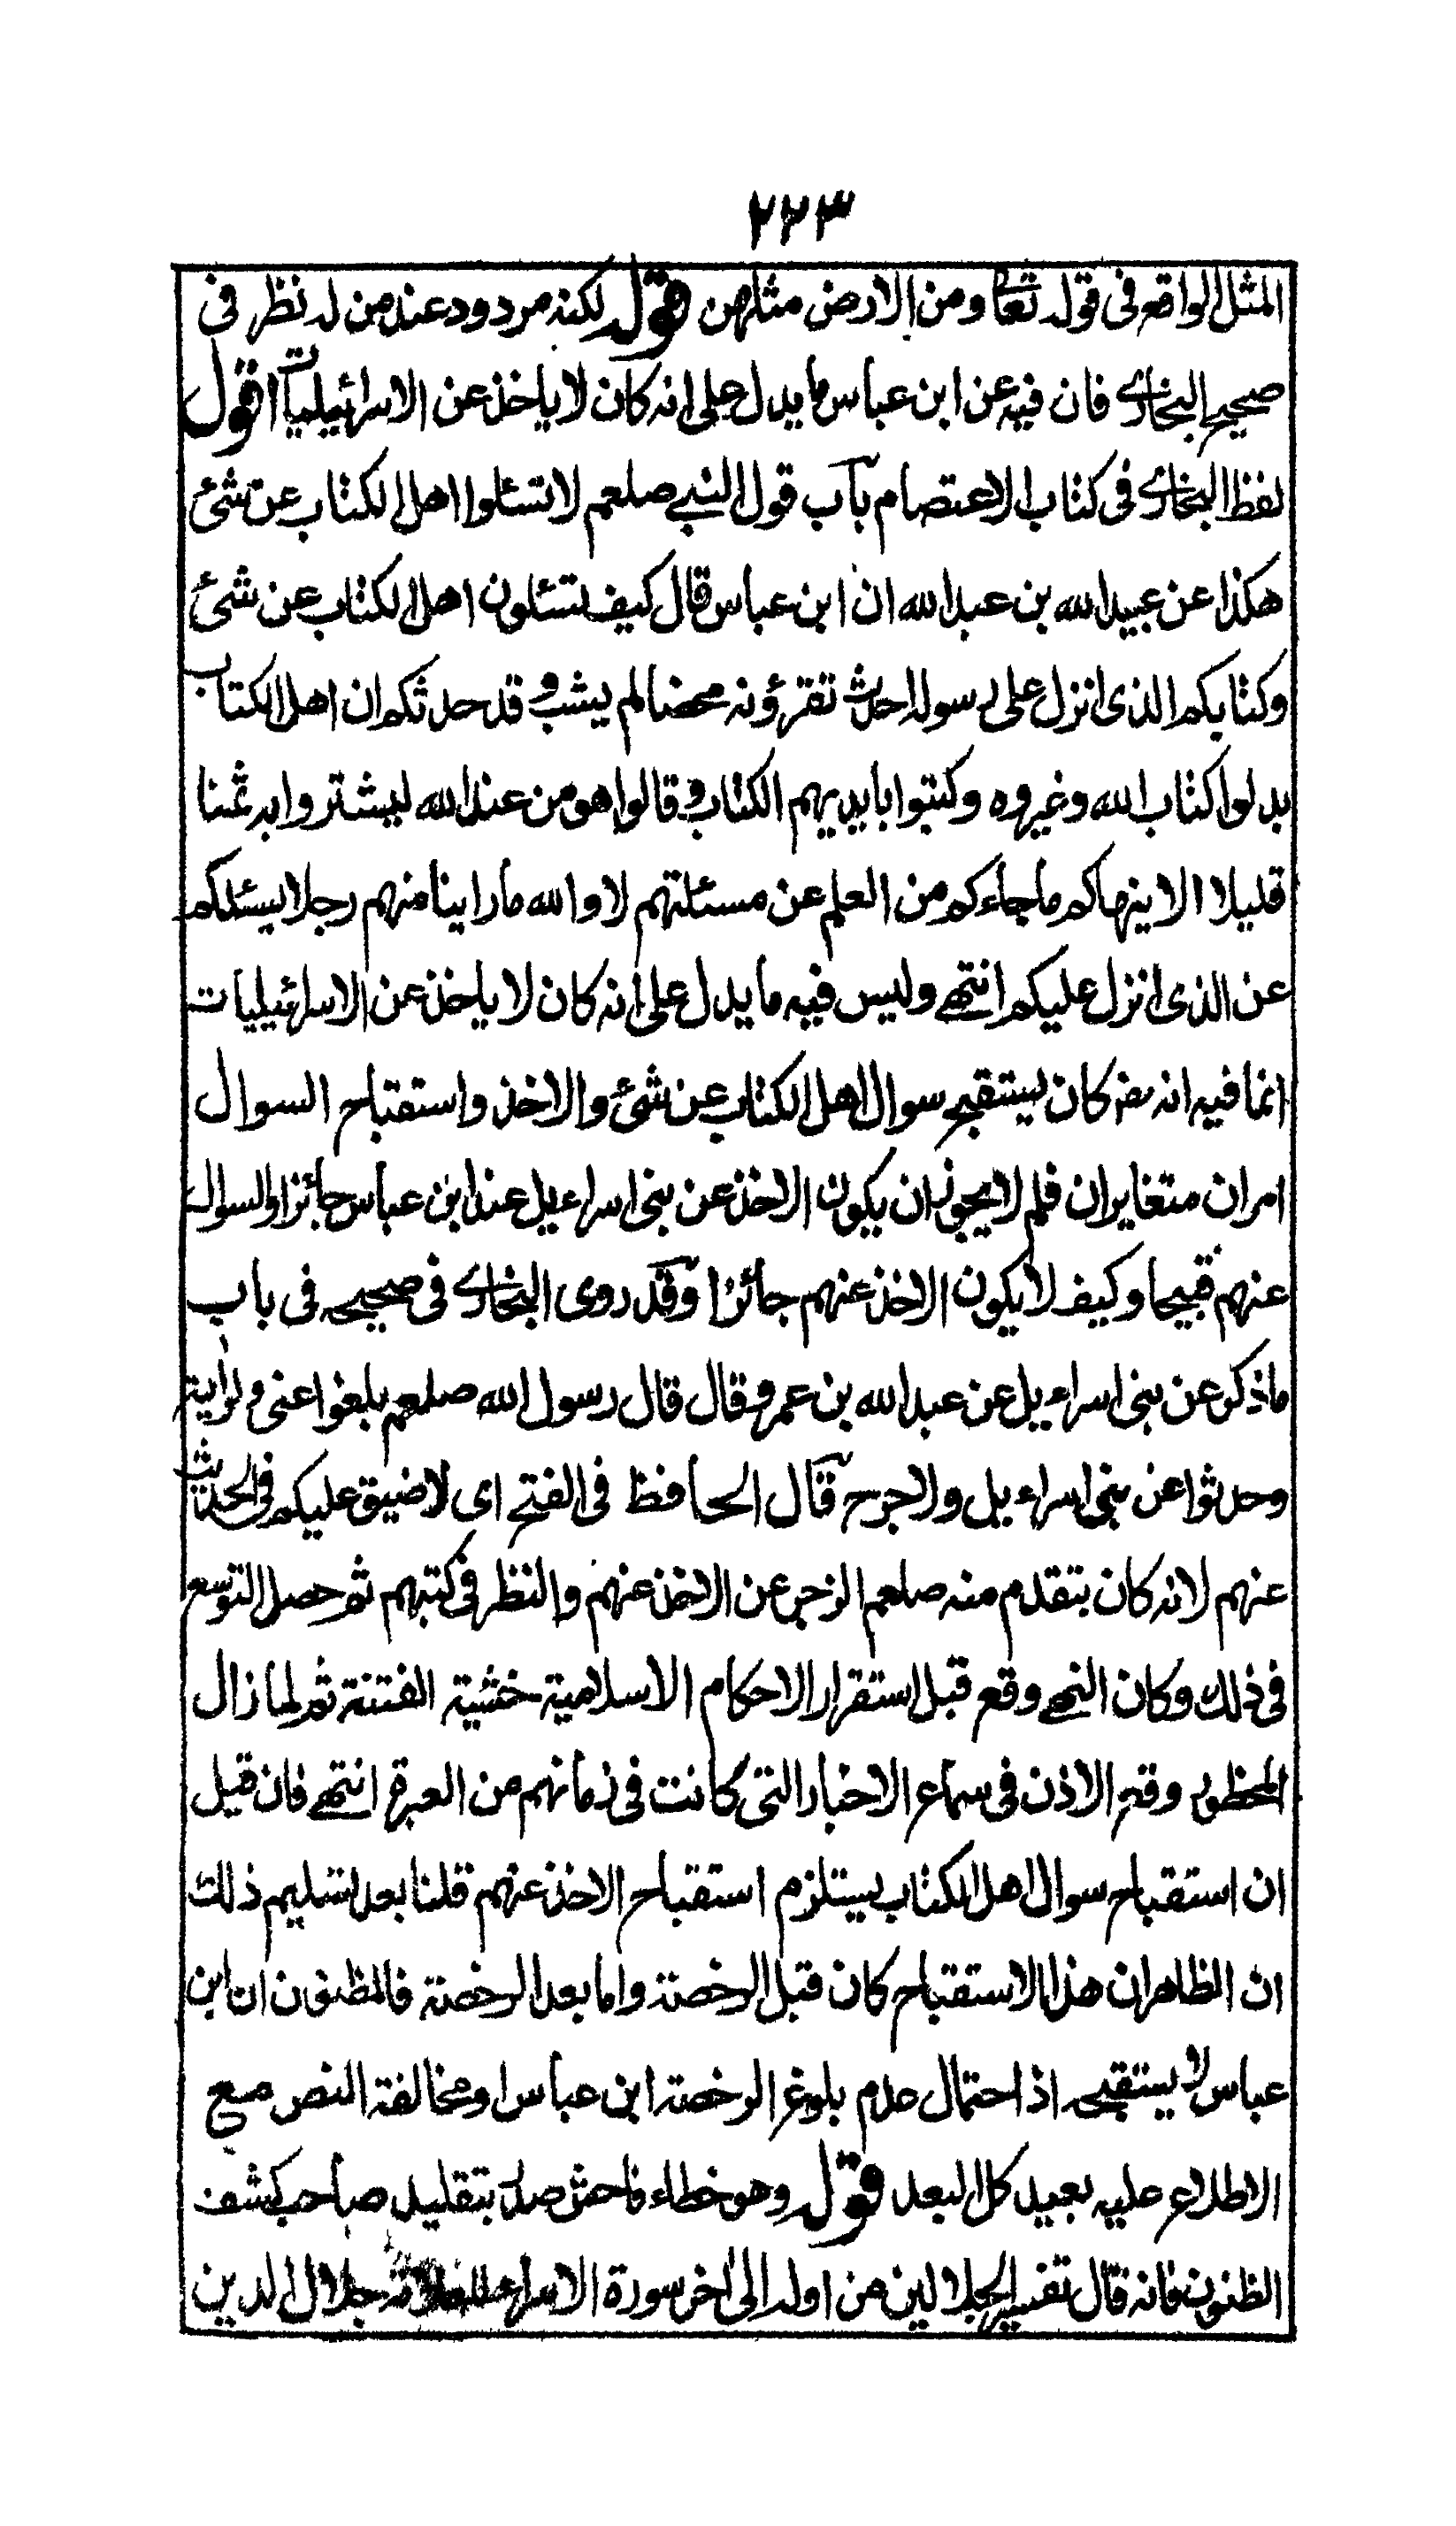 ٢٢٣
المثل الواقع فى قوله تعا ومن الارض مثلهن قوله لكنه مردود عند من له نظر فى
صحيح البخارى فان فيه عن ابن عباس ما يدل على انه كان لا ياخذ عن الاسرائيليات اقول
لفظ البخارى فى كتاب الاعتصام باب قول النبى صلعم لا تسئلوا اهل الكتاب عن شئ
هكذا عن عبيد الله بن عبد الله ان ابن عباس قال كيف تسئلون اهل الكتاب عن شئ
وكتابكم الذى انزل على رسوله احدث تقرؤنه محضا لم يشب و قد حدثكم ان اهل الكتاب
بدلوا كتاب الله وغيروه وكتبوا بايديهم الكتاب و قالوا هو من عند الله ليشتروا به ثمنا
قليلا الا ينهاكم ما جاءكم من العلم عن مسئلتهم لا والله ما راينا منهم رجلا يسئلكم
عن الذى انزل عليكم انتهى وليس فيه ما يدل على انه كان لا ياخذ عن الاسرائيليات
انما فيه انه رض كان يستقبح سوال اهل الكتاب عن شئ والاخذ واستقباح السوال
امران متغايران فلم لا يجوز ان يكون الاخذ عن بنى اسراءيل عند ابن عباس جائزا والسوال
عنهم قبيحا وكيف لا يكون الاخذ عنهم جائزا وقد روى البخارى فى صحيحه فى باب
ما ذكر عن بنى اسراءيل عن عبد الله بن عمرو قال قال رسول الله صلعم بلغوا عنى ولو اية
وحدثوا عن بنى اسراءيل ولا حرج قال الحافظ فى الفتح اى لا ضيق عليكم فى الحديث
عنهم لانه كان بتقدم منه صلعم الزجر عن الاخذ عنهم والنظر فى كتبهم ثم حصل التوسع
فى ذلك وكان النهى وقع قبل استقرار الاحكام الاسلامية خشية الفتنة ثم لما زال
المحظور وقع الاذن فى سماع الاخبار التى كانت فى زمانهم من العبرة انتهى فان قيل
ان استقباح سوال اهل الكتاب يستلزم استقباح الاخذ عنهم قلنا بعد تسليم ذلك
ان الظاهر ان هذا الاستقباح كان قبل الرخصة واما بعد الرخصة فالمظنون ان ابن
عباس لا يستقبحه اذ احتمال عدم بلوغ الرخصة ابن عباس او مخالفة النص مع
الاطلاع عليه بعيد كل البعد قوله وهو خطاء فاحش صدر بتقليد صاحب كشف
الظنون فانه قال تفسير الجلالين من اوله الى اخر سورة الاسراء للعلامة جلال الدين